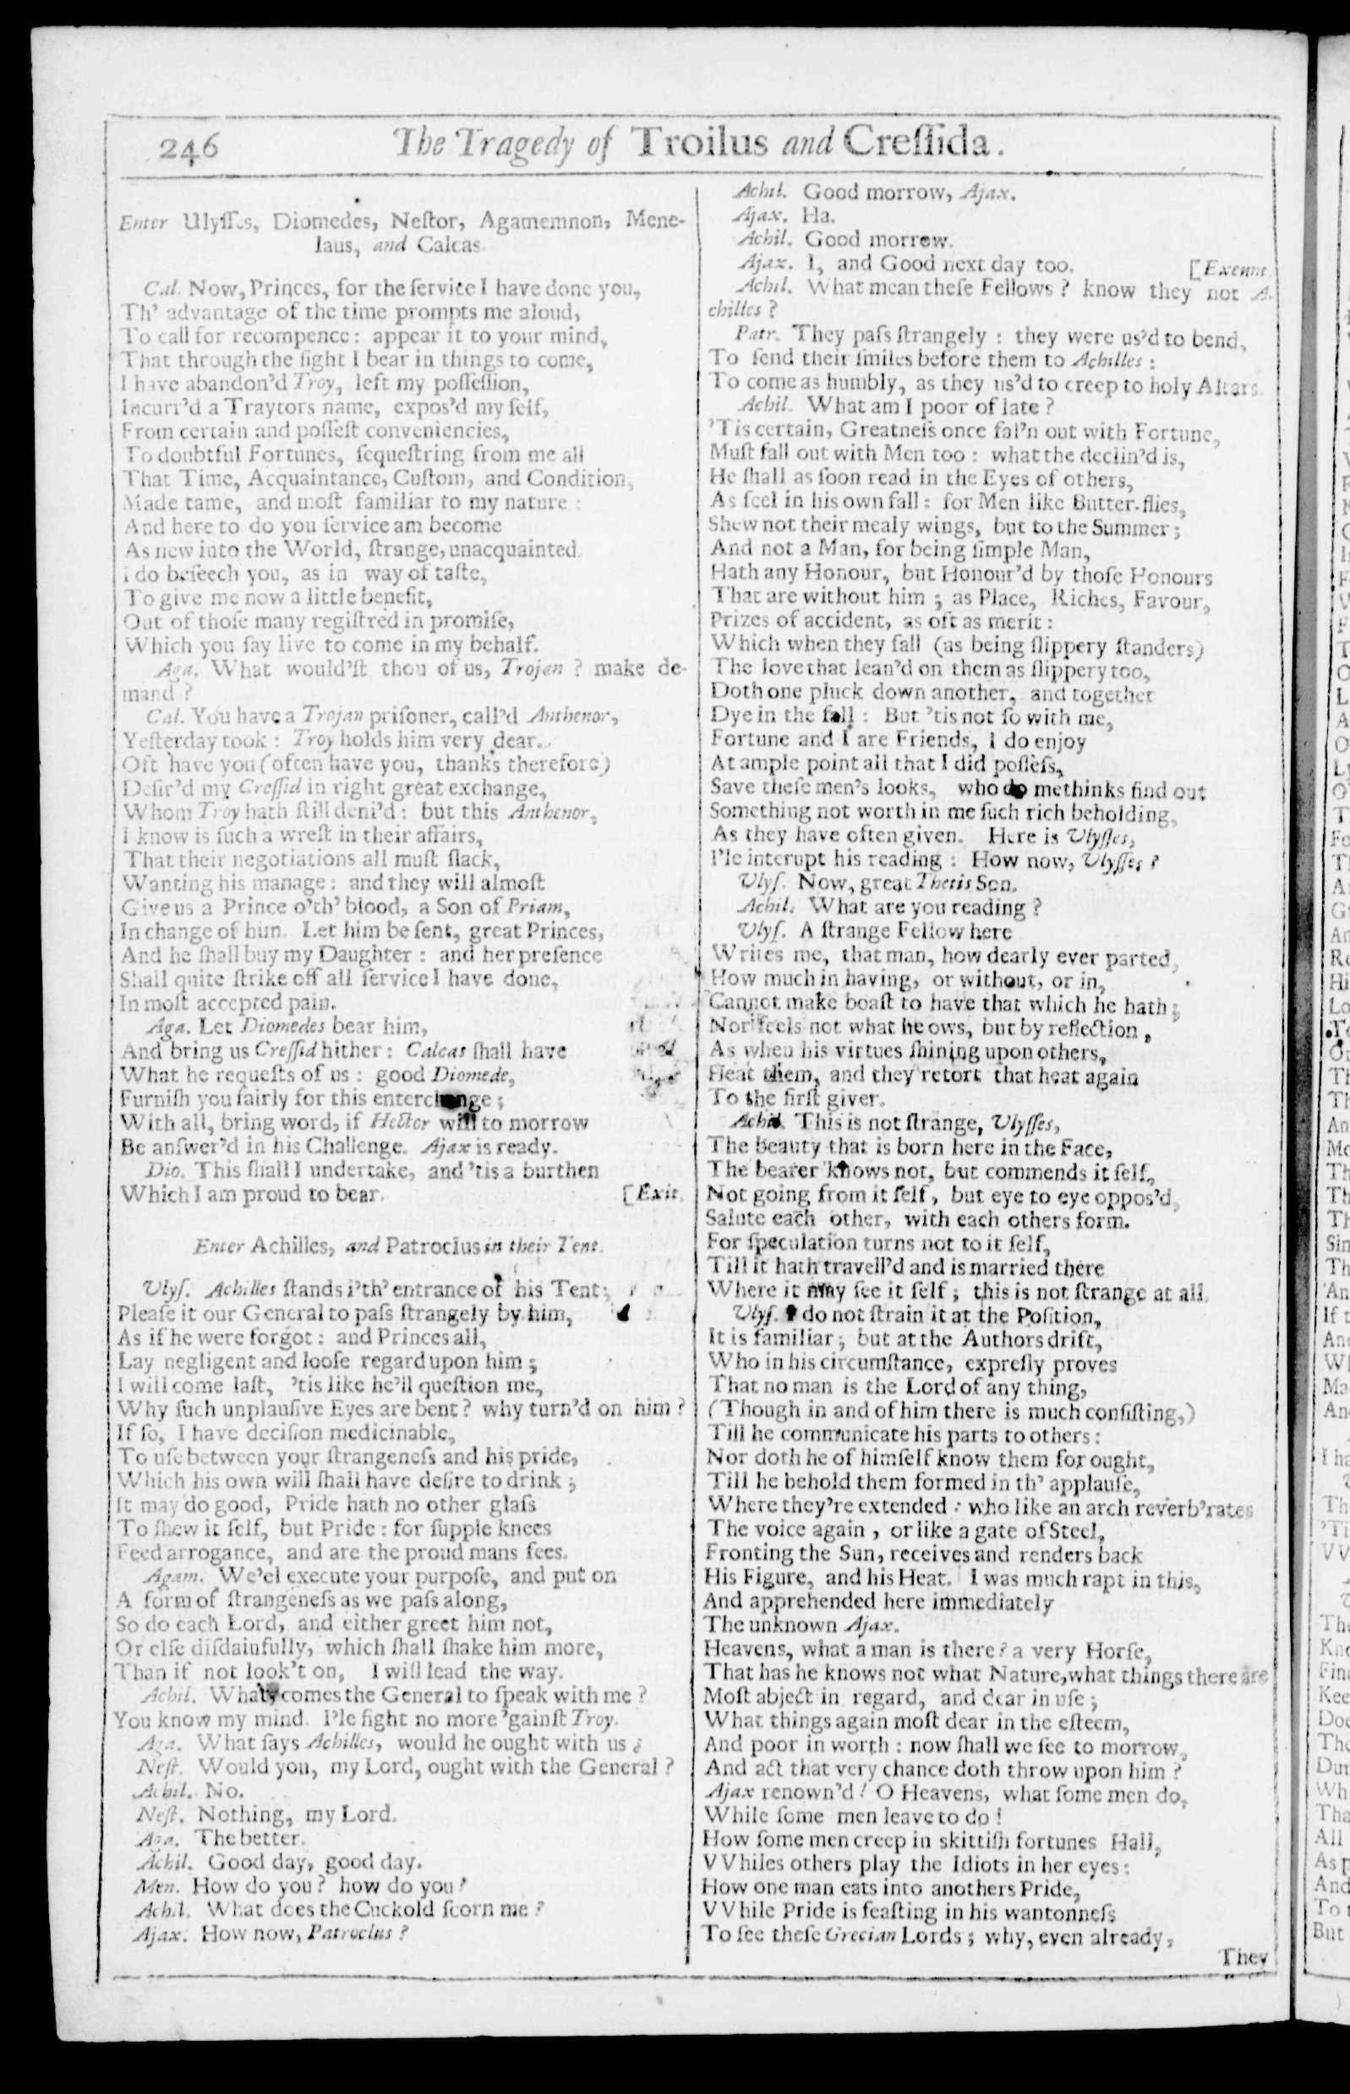 246 The Tragedy of Troilus and Creſſida.
Enter Ulyſſes, Diomedes, Neſtor, Agamemnon, Mene-
laus, and Calcas.
Cal. Now, Princes, for the ſervice I have done you,
Th' advantage of the time prompts me aloud,
To call for recompence: appear it to your mind,
That through the ſight I bear in things to come,
I have abandon'd Troy, left my poſſeſſion,
Incurr'd a Traytors name, expos'd my ſelf,
From certain and poſſeſt conveniencies,
To doubtful Fortunes, ſequeſtring from me all
That Time, Acquaintance, Cuſtom, and Condition,
Made tame, and moſt familiar to my nature:
And here to do you ſervice am become
As new into the World, ſtrange, unacquainted.
I do beſeech you, as in way of taſte,
To give me now a little benefit,
Out of thoſe many regiſtred in promiſe,
Which you ſay live to come in my behalf.
Aga. What would'ſt thou of us, Trojan? make de-
mand?
Cal. You have a Trojan priſoner, call'd Anthenor,
Yeſterday took: Troy holds him very dear.
Oft have you (often have you, thanks therefore)
Deſir'd my Creſſid in right great exchange,
Whom Troy hath ſtill deni'd: but this Anthenor,
I know is ſuch a wreſt in their affairs,
That their negotiations all muſt ſlack,
Wanting his manage: and they will almoſt
Give us a Prince o'th' blood, a Son of Priam,
In change of him. Let him be ſent, great Princes,
And he ſhall buy my Daughter: and her preſence
Shall quite ſtrike off all ſervice I have done,
In moſt accepted pain.
Aga. Let Diomedes bear him,
And bring us Creſſid hither: Calcas ſhall have
What he requeſts of us: good Diomede,
Furniſh you fairly for this enterchange;
With all, bring word, if Hector will to morrow
Be anſwer'd in his Challenge. Ajax is ready.
Dio. This ſhall I undertake, and 'tis a burthen
Which I am proud to bear. [Exit.
Enter Achilles, and Patroclus in their Tent.
Ulyſ. Achilles ſtands i'th' entrance of his Tent;
Pleaſe it our General to paſs ſtrangely by him,
As if he were forgot: and Princes all,
Lay negligent and looſe regard upon him;
I will come laſt, 'tis like he'll queſtion me,
Why ſuch unplauſive Eyes are bent? why turn'd on him?
If ſo, I have deciſion medicinable,
To uſe between your ſtrangeneſs and his pride,
Which his own will ſhall have deſire to drink;
It may do good, Pride hath no other glaſs
To ſhew it ſelf, but Pride: for ſupple knees
Feed arrogance, and are the proud mans fees.
Agam. We'el execute your purpoſe, and put on
A form of ſtrangeneſs as we paſs along,
So do each Lord, and either greet him not,
Or elſe diſdainfully, which ſhall ſhake him more,
Than if not look't on, I will lead the way.
Achil. What, comes the General to ſpeak with me?
You know my mind. I'le fight no more 'gainſt Troy.
Aga. What ſays Achilles, would he ought with us?
Neſt. Would you, my Lord, ought with the General?
Achil. No.
Neſt. Nothing, my Lord.
Aga. The better.
Achil. Good day, good day.
Men. How do you? how do you?
Achil. What does the Cuckold ſcorn me?
Ajax. How now, Patroclus?
Achil. Good morrow, Ajax.
Ajax. Ha.
Achil. Good morrow.
Ajax. I, and Good next day too. [Exeunt.
Achil. What mean theſe Fellows? know they not A-
chilles?
Patr. They paſs ſtrangely: they were us'd to bend,
To ſend their ſmiles before them to Achilles:
To come as humbly, as they us'd to creep to holy Altars.
Achil. What am I poor of late?
'Tis certain, Greatneſs once fal'n out with Fortune,
Muſt fall out with Men too: what the declin'd is,
He ſhall as ſoon read in the Eyes of others,
As feel in his own fall: for Men like Butter-flies,
Shew not their mealy wings, but to the Summer;
And not a Man, for being ſimple Man,
Hath any Honour, but Honour'd by thoſe Honours
That are without him; as Place, Riches, Favour,
Prizes of accident, as oft as merit:
Which when they fall (as being ſlippery ſtanders)
The love that lean'd on them as ſlippery too,
Doth one pluck down another, and together
Dye in the fall: But 'tis not ſo with me,
Fortune and I are Friends, I do enjoy
At ample point all that I did poſſeſs,
Save theſe men's looks, who do methinks find out
Something not worth in me ſuch rich beholding,
As they have often given. Here is Ulyſſes,
I'le interupt his reading: How now, Ulyſſes?
Ulyſ. Now, great Thetis Son.
Achil. What are you reading?
Ulyſ. A ſtrange Fellow here
Writes me, that man, how dearly ever parted,
How much in having, or without, or in,
Cannot make boaſt to have that which he hath;
Nor feels not what he ows, but by reflection,
As when his virtues ſhining upon others,
Heat them, and they retort that heat again
To the firſt giver.
Achil. This is not ſtrange, Ulyſſes,
The beauty that is born here in the Face,
The bearer knows not, but commends it ſelf,
Not going from it ſelf, but eye to eye oppos'd,
Salute each other, with each others form.
For ſpeculation turns not to it ſelf,
Till it hath travell'd and is married there
Where it may ſee it ſelf; this is not ſtrange at all.
Ulyſ. I do not ſtrain it at the Poſition,
It is familiar; but at the Authors drift,
Who in his circumſtance, expreſly proves
That no man is the Lord of any thing,
(Though in and of him there is much conſiſting,)
Till he communicate his parts to others:
Nor doth he of himſelf know them for ought,
Till he behold them formed in th' applauſe,
Where they're extended: who like an arch reverb'rates
The voice again, or like a gate of Steel,
Fronting the Sun, receives and renders back
His Figure, and his Heat. I was much rapt in this,
And apprehended here immediately
The unknown Ajax.
Heavens, what a man is there? a very Horſe,
That has he knows not what Nature, what things there are
Moſt abject in regard, and dear in uſe;
What things again moſt dear in the eſteem,
And poor in worth: now ſhall we ſee to morrow,
And act that very chance doth throw upon him?
Ajax renown'd! O Heavens, what ſome men do,
While ſome men leave to do!
How ſome men creep in skittiſh fortunes Hall,
VVhiles others play the Idiots in her eyes:
How one man eats into anothers Pride,
VVhile Pride is feaſting in his wantonneſs
To ſee theſe Grecian Lords; why, even already,
They